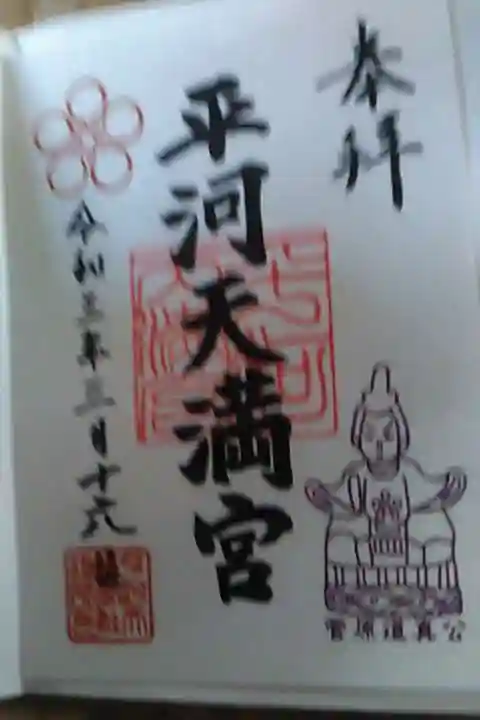 奉拝
平河天満宮
令和三年三月十六
菅原道真公